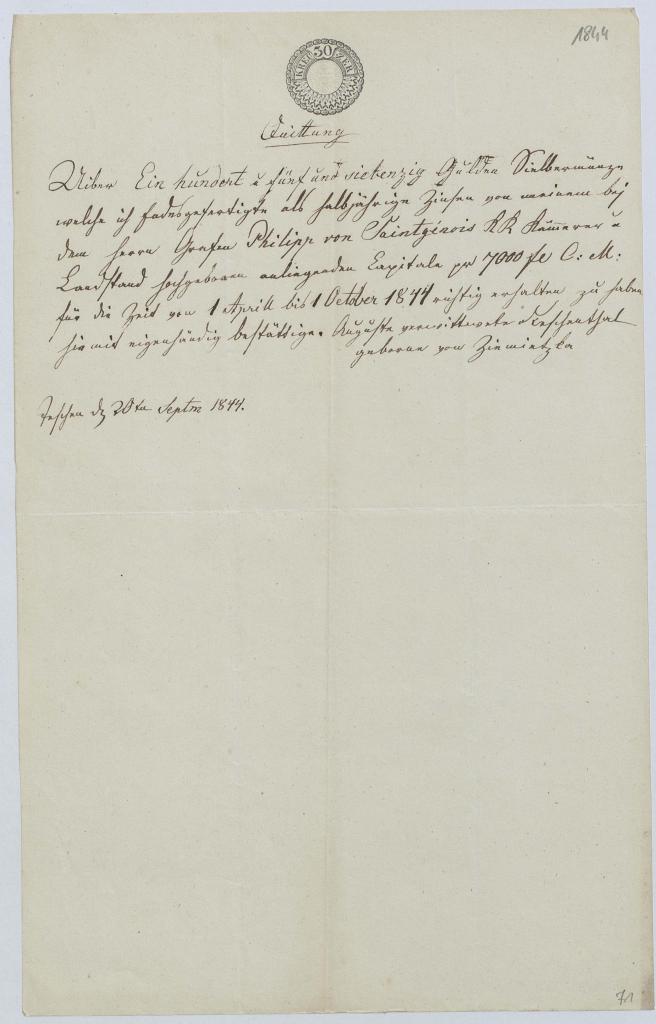 1844
30 KREUZER
Quittung
Uiber Ein hundert u fünf und siebenzig Gulden Sielbermünze
welche ich Endesgefertigte als halbjährige Zinsen von meinem bej
dem Herrn Grafen Philipp von Saintgenois KK Kämmerer u
Landstand hochgeboren anliegenden Capitale pr 7000 fl C: M:
für die Zeit von 1 Aprill bis 1 October 1844 richtig erhalten zu haben
hiemit eigenhändig bestättige. Auguste verwittwete
geborne von Ziemietzka
Teschen d 20tn Septm 1844.
71